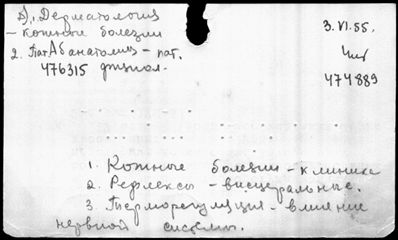 1. Дерматология
- кожные болезни
2. Пат. анатомия - пат.
476315 физиол.
3.VI.55.
474889
1. Кожные болезни - клиника
2. Рефлексы - висцеральные.
3. Терморегуляция - влияние
нервной системы.